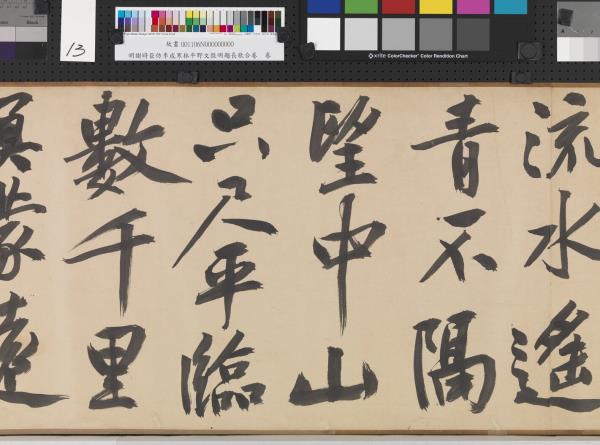 Black
13
故畫001106N000000000
明謝時臣仿李成寒林平野文徵明題長歌合卷 卷
x-rite ColorChecker® Color Rendition Chart
流水遙
青不隔
望中山
只尺平臨
數千里
蒙遠